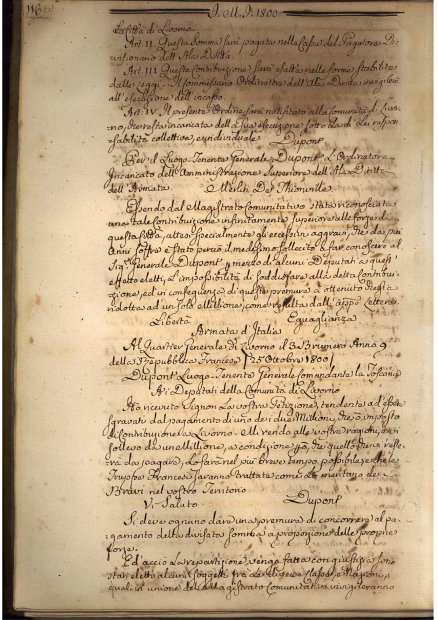 116
J. M. J. 1800
la Città di Livorno.
Art. II. Questa Somma sarà pagata nella Cassa del Pagatore Di=
visionario dell'Ala Diritta.
Art. III. Questa Contribuzione sarà esatta nelle forme stabilite
dalle Leggi. Il Commissario Ordinatore dell'Ala Diritta
all'esecuzione dell'incasso.
Art. IV. Il presente Ordine sarà notificato alla Comunità di Livor=
no, che resta incaricata dell'Esecuzione, sotto la di Lei respon=
sabilità collettiva, e individuale. Dupont
Per il Luogo Tenente Generale Dupont L'Ordinatore
Incaricato dell'Amministrazione Superiore dell'Ala Diritta
dell'Armata. Merlin De Thionville.
Essendo dal Magistrato Comunitativo stata riconosciuta
una tale Contribuzione infinitamente superiore alle forze di
questa Città, atteso specialmente gli eccessivi aggravi, che da più
Anni soffre, è stato perciò il medesimo sollecito a far conoscere al
Sig. Generale Dupont p mezzo di alcuni Deputati a quest'
effetto eletti, l'impossibilità di soddisfare alla detta Contribu=
zione, ed in conseguenza di queste premure à ottenuto
ridotta ad un solo Millione, come resulta dall'appo Lettera.
Libertà Eguaglianza
Armata d'Italia
Al Quartier Generale di Livorno il 3 Brumero Anno 9
della Repubblica Francese /25 Ottobre 1800/
Dupont Luogo Tenente Generale Comandante la Toscana
Ai Deputati della Comunità di Livorno
Ho ricevuto Signori la vostra Petizione, tendente ad esser
sgravati dal pagamento di uno dei due Millioni, che ò imposto
di Contribuzione a Livorno. Mi rendo alle vostre ragioni, e vi
sollevo di un Millione, a condizione pò, che quello che vi res=
tra da pagare, lo sarà nel più breve tempo possibile, e che le
Truppe Francesi saranno trattate come lo meritano dei
Bravi nel vostro Territorio
Vi Saluto Dupont
Si deve ognuno dare una premura di concorrere al pa=
gamento della divisata Somma a proporzione delle proprie
forze.
Ed acciò la repartizione venga fatta con giustizia sono
stati eletti alcuni Soggetti fra le diverse Classi, e Nazioni,
quali in unione del Magistrato Comunitativo invigileranno